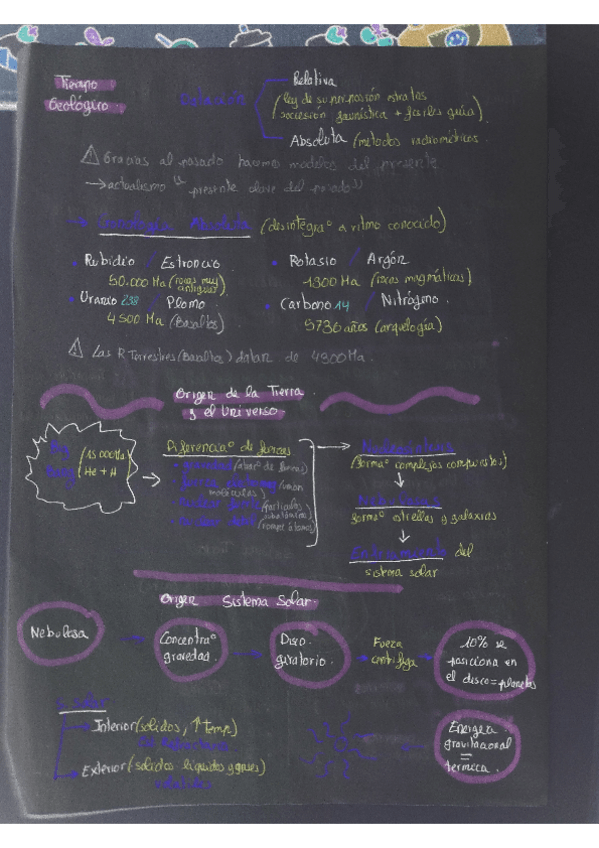 Tiempo
Geológico
Datación
Relativa
(ley de superposición estratos
sucesión faunística + fósiles guía)
Absoluta (métodos radiométricos
⚠ Gracias al pasado hacemos modelos del presente
→ actualismo "presente clave del pasado"
→ Cronología Absoluta (desintegra° a ritmo conocido)
• Rubidio / Estroncio
50.000 Ma (rocas muy
antiguas)
• Potasio / Argón
1300 Ma (rocas magmáticas)
• Uranio 238 / Plomo
4500 Ma (Basaltos)
• Carbono 14 / Nitrógeno.
5736 años (arqueología)
⚠ Las R. Terrestres (Basaltos) datan de 4300 Ma.
Origen de la Tierra
y el Universo
Big
bang
(15000Ma
He + H)
→
Diferencia° de fuerzas
• gravedad
• nuclear fuerte (partículas
subatómicas)
→
(forma° complejos compuestos)
↓
forma° estrellas y galaxias
↓
Enfriamiento del
sistema solar
Origen Sistema Solar.
Nebulosa
→
Concentra°
gravedad.
→
Disco
giratorio.
Fuerza
centrífuga
→
10% se
posiciona en
el disco = planetas
S. solar
→ Interior (sólidos, ↑ temp)
→ Exterior (sólidos líquidos y gases)
volátiles
Energía
gravitacional
=
térmica.